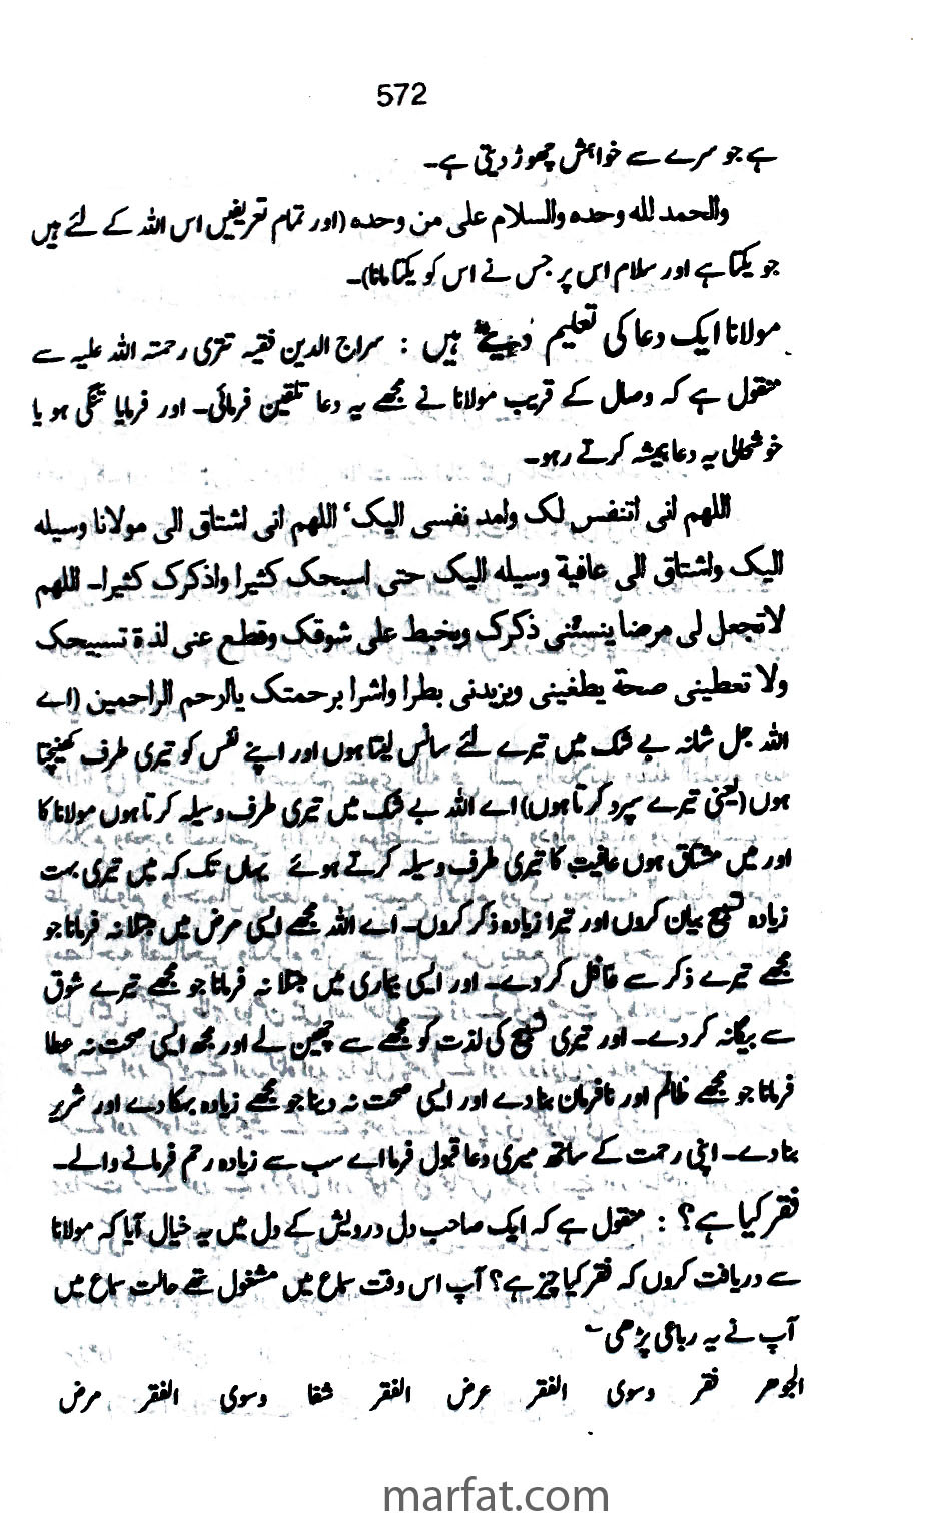 572
ہے جو سرے سے خواہش چھوڑ دیتی ہے۔
والحمد للہ وحدہ والسلام علی من وحدہ (اور تمام تعریفیں اس اللہ کے لئے ہیں
جو یکتا ہے اور سلام اس پر جس نے اس کو یکتا مانا)۔
مولانا ایک دعا کی تعلیم دیتے ہیں : سراج الدین فقیہ تتری رحمتہ اللہ علیہ سے
منقول ہے کہ وصال کے قریب مولانا نے مجھے یہ دعا تلقین فرمائی۔ اور فرمایا تنگی ہو یا
خوشحالی یہ دعا ہمیشہ کرتے رہو۔
اللھم انی اتنفس لک وامد نفسی الیک‘ اللھم انی اشتاق الی مولانا وسیلہ
الیک واشتاق الی عافیة وسیلہ الیک حتی اسبحک کثیرا واذکرک کثیرا۔ اللھم
لاتجعل لی مرضا ینسئنی ذکرک ویخبط علی شوقک وقطع عنی لذة تسبیحک
ولا تعطینی صحة یطغینی ویزیدنی بطرا واشرا برحمتک یاارحم الراحمین (اے
اللہ جل شانہ بے شک میں تیرے لئے سانس لیتا ہوں اور اپنے نفس کو تیری طرف کھینچتا
ہوں (یعنی تیرے سپرد کرتا ہوں) اے اللہ بے شک میں تیری طرف وسیلہ کرتا ہوں مولانا کا
اور میں مشتاق ہوں عافیت کا تیری طرف وسیلہ کرتے ہوئے یہاں تک کہ میں تیری بہت
زیادہ تسبیح بیان کروں اور تیرا زیادہ ذکر کروں۔ اے اللہ مجھے ایسی مرض میں مبتلا نہ فرمانا جو
مجھے تیرے ذکر سے غافل کر دے۔ اور ایسی بیماری میں مبتلا نہ فرمانا جو مجھے تیرے شوق
سے بیگانہ کر دے۔ اور تیری تسبیح کی لذت کو مجھے سے چھین لے اور مجھ ایسی صحت نہ عطا
فرمانا جو مجھے ظالم اور نافرمان بنا دے اور ایسی صحت نہ دینا جو مجھے زیادہ بہکا دے اور شریر
بنا دے۔ اپنی رحمت کے ساتھ میری دعا قبول فرما اے سب سے زیادہ رحم فرمانے والے۔
فقر کیا ہے؟ : منقول ہے کہ ایک صاحب دل درویش کے دل میں یہ خیال آیا کہ مولانا
سے دریافت کروں کہ فقر کیا چیز ہے؟ آپ اس وقت سماع میں مشغول تھے حالت سماع میں
آپ نے یہ رباعی پڑھی
الجوھر فقر وسوی الفقر عرض الفقر شفا وسوی الفقر مرض
marfat.com